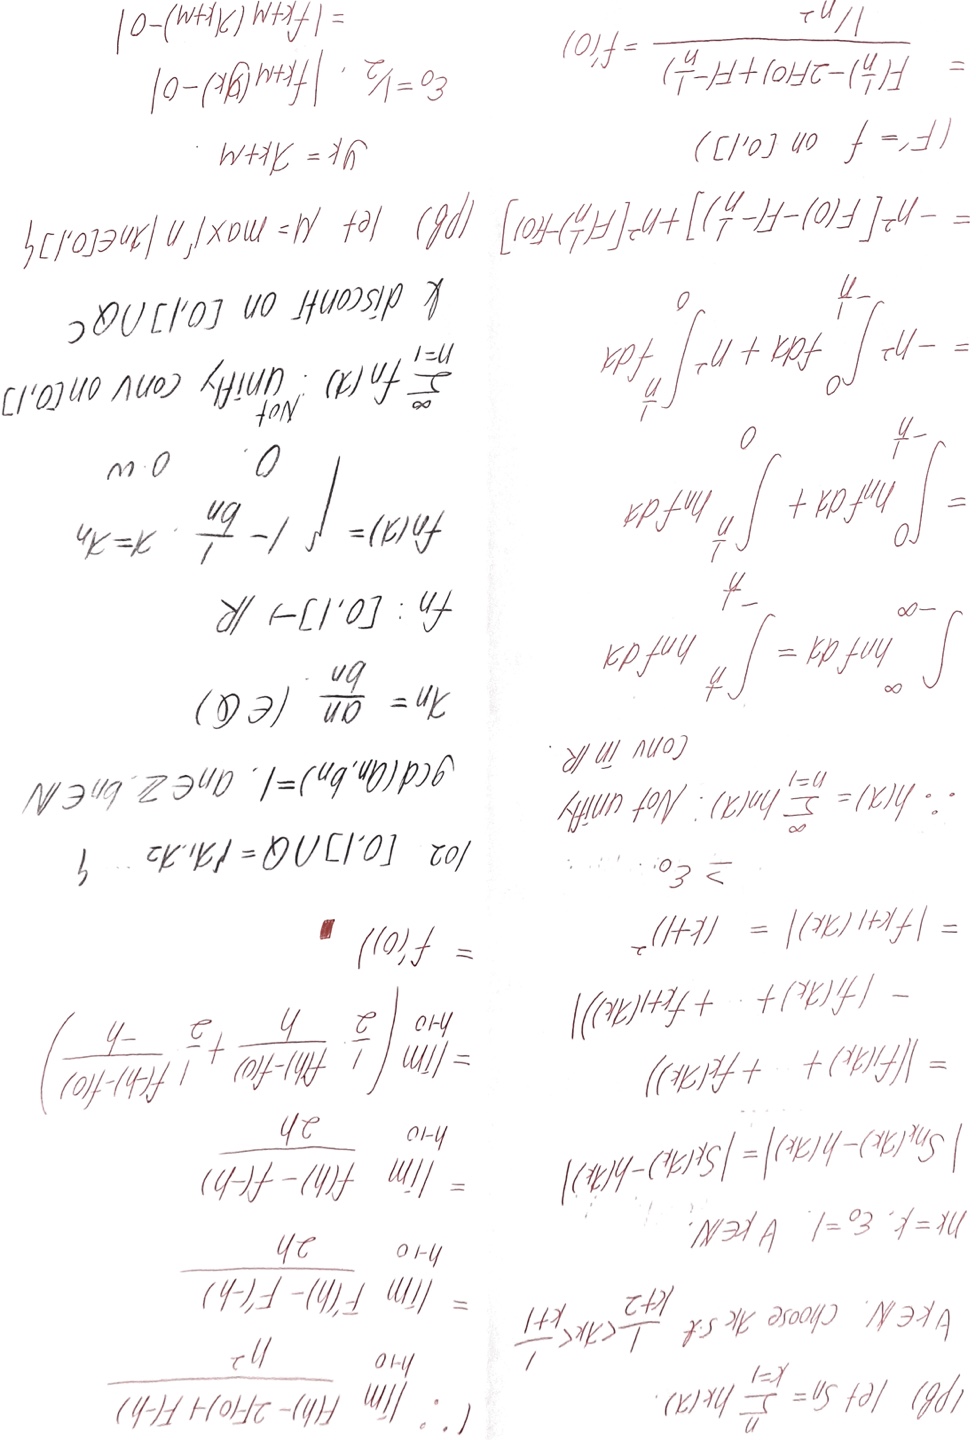 (pb) let Sn = \sum_{k=1}^{n} hk(x).
∀k∈N. choose xk s.t 1/(k+2) < xk < 1/(k+1)
nk=k. ε0=1. ∀k∈N.
|Snk(xk)-h(xk)| = |Sk(xk)-h(xk)|
= |(f1(xk)+ +fk(xk))
- (f1(xk)+ +fk+1(xk))|
= |fk+1(xk)| = (k+1)²
≥ ε0.
∴ h(x) = \sum_{n=1}^{∞} hn(x) : Not unifly
conv in R.
\int_{-∞}^{∞} hnf dx = \int_{-1/n}^{1/n} hnf dx
= \int_{-1/n}^{0} hnf dx + \int_{0}^{1/n} hnf dx
= -n² \int_{-1/n}^{0} f dx + n² \int_{0}^{1/n} f dx
= -n²[F(0)-F(-1/n)] + n²[F(1/n)-F(0)]
(F'= f on [0,1])
= (F(1/n)-2F(0)+F(-1/n))/(1/n²) = f'(0)
(∵ lim_{h→0} (F(h)-2F(0)+F(-h))/h²
= lim_{h→0} (F'(h)-F'(-h))/2h
= lim_{h→0} (f(h)-f(-h))/2h
= lim_{h→0} (1/2 · (f(h)-f(0))/h + 1/2 · (f(-h)-f(0))/-h)
= f'(0))
102 [0,1]∩Q = {x1,x2 }
gcd(an,bn)=1. an∈Z. bn∈N
xn = an/bn (∈Q)
fn : [0,1] → R
fn(x) = { 1 - 1/bn . x=xn
0. o.w
\sum_{n=1}^{∞} fn(x) : Not unifly conv on [0,1]
& discont on [0,1]∩Q^c
(pb) let M = max{n | xn∈[0,1]}
yk = xk+M .
ε0 = 1/2 . |fk+M(yk)-0|
= |fk+M(xk+M)-0|